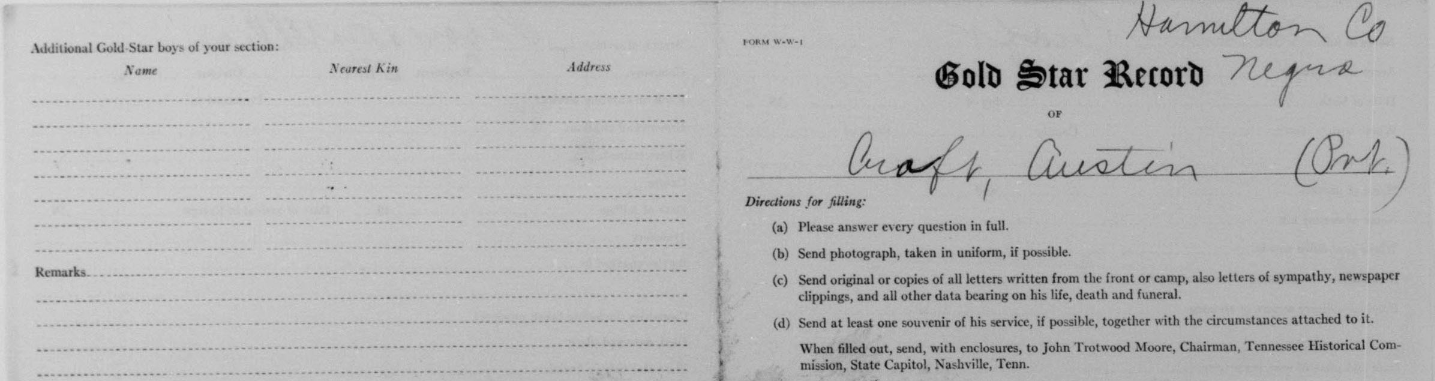 Additional Gold Star boys of your section:
Name Nearest Kin Address
Remarks
FORM W-W-1
Hamilton Co
Gold Star Record Negro
OF
Craft, Austin (Pvt.)
Directions for filling:
(a) Please answer every question in full.
(b) Send photograph, taken in uniform, if possible.
(c) Send original or copies of all letters written from the front or camp, also letters of sympathy, newspaper
clippings, and all other data bearing on his life, death and funeral.
(d) Send at least one souvenir of his service, if possible, together with the circumstances attached to it.
When filled out, send, with enclosures, to John Trotwood Moore, Chairman, Tennessee Historical Com-
mission, State Capitol, Nashville, Tenn.